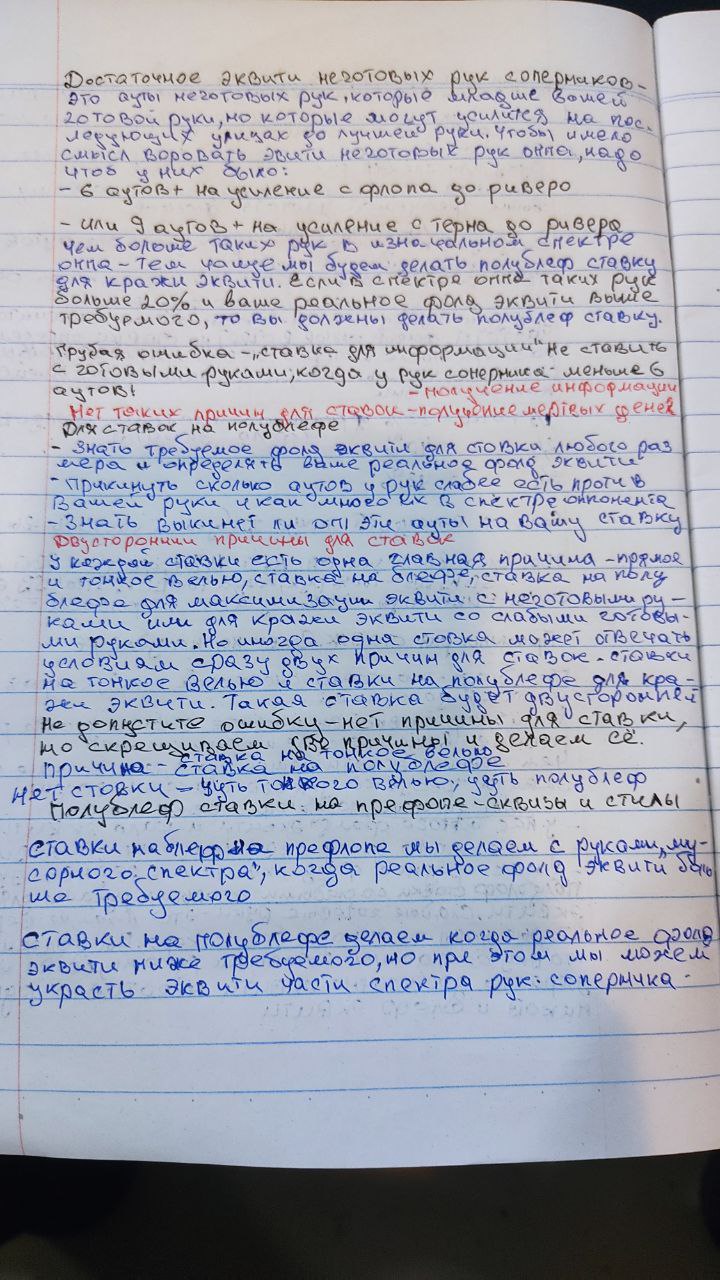 Достаточное эквити неготовых рук соперников-
это ауты неготовых рук, которые младше вашей
готовой руки, но которые могут усилится на пос-
ледующих улицах до лучшей руки. Чтобы имело
смысл воровать эвити неготовых рук оппа, надо
чтоб у них было:
- 6 аутов+ на усиление с флопа до риверо
- или 9 аутов+ на усиление с терна до ривера
Чем больше таких рук в изначальном спектре
оппа - тем чаще мы будем делать полублеф ставку
для кражи эквити. Если в спектре оппа таких рук
больше 20% и ваше реальное фолд эквити выше
требуемого, то вы должны делать полублеф ставку.
Грубая ошибка - „ставка для информации" не ставить
с готовыми руками, когда у рук соперника меньше 6
аутов!
- получение информации
Нет таких причин для ставок - получение мертвых денег
Для ставок на полублефе
- Знать требуемое фолд эквити для ставки любого раз
мера и определять выше реальное фолд эквити
- Прикинуть сколько аутов у рук слабее есть против
Вашей руки и как много их в спектре оппонента
- Знать выкинет ли опп эти ауты на вашу ставку
Двусторонние причины для ставок
У каждой ставки есть одна главная причина - прямое
и тонкое велью, ставка на блефе, ставка на полу
блефе для максимизации эквити с неготовыми ру-
ками или для кражи эквити со слабыми готовы-
ми руками. Но иногда одна ставка может отвечать
условиям сразу двух причин для ставок - ставки
на тонкое велью и ставки на полублефе для кра-
жи эквити. Такая ставка будет двусторонней
Не допустите ошибку - нет причины для ставки,
но скрещиваем две причины и делаем её.
ставка на тонкое велью
Причина - ставка на полублефе
нет ставки - чуть тонкого велью, чуть полублеф
Полублеф ставки на префлопе - сквизы и стилы
Ставки на блефе префлопа мы делаем с руками „му-
сорного спектра", когда реальное фолд эквити боль
ше требуемого
Ставки на полублефе делаем когда реальное фолд
эквити ниже требуемого, но при этом мы можем
украсть эквити части спектра рук соперника.